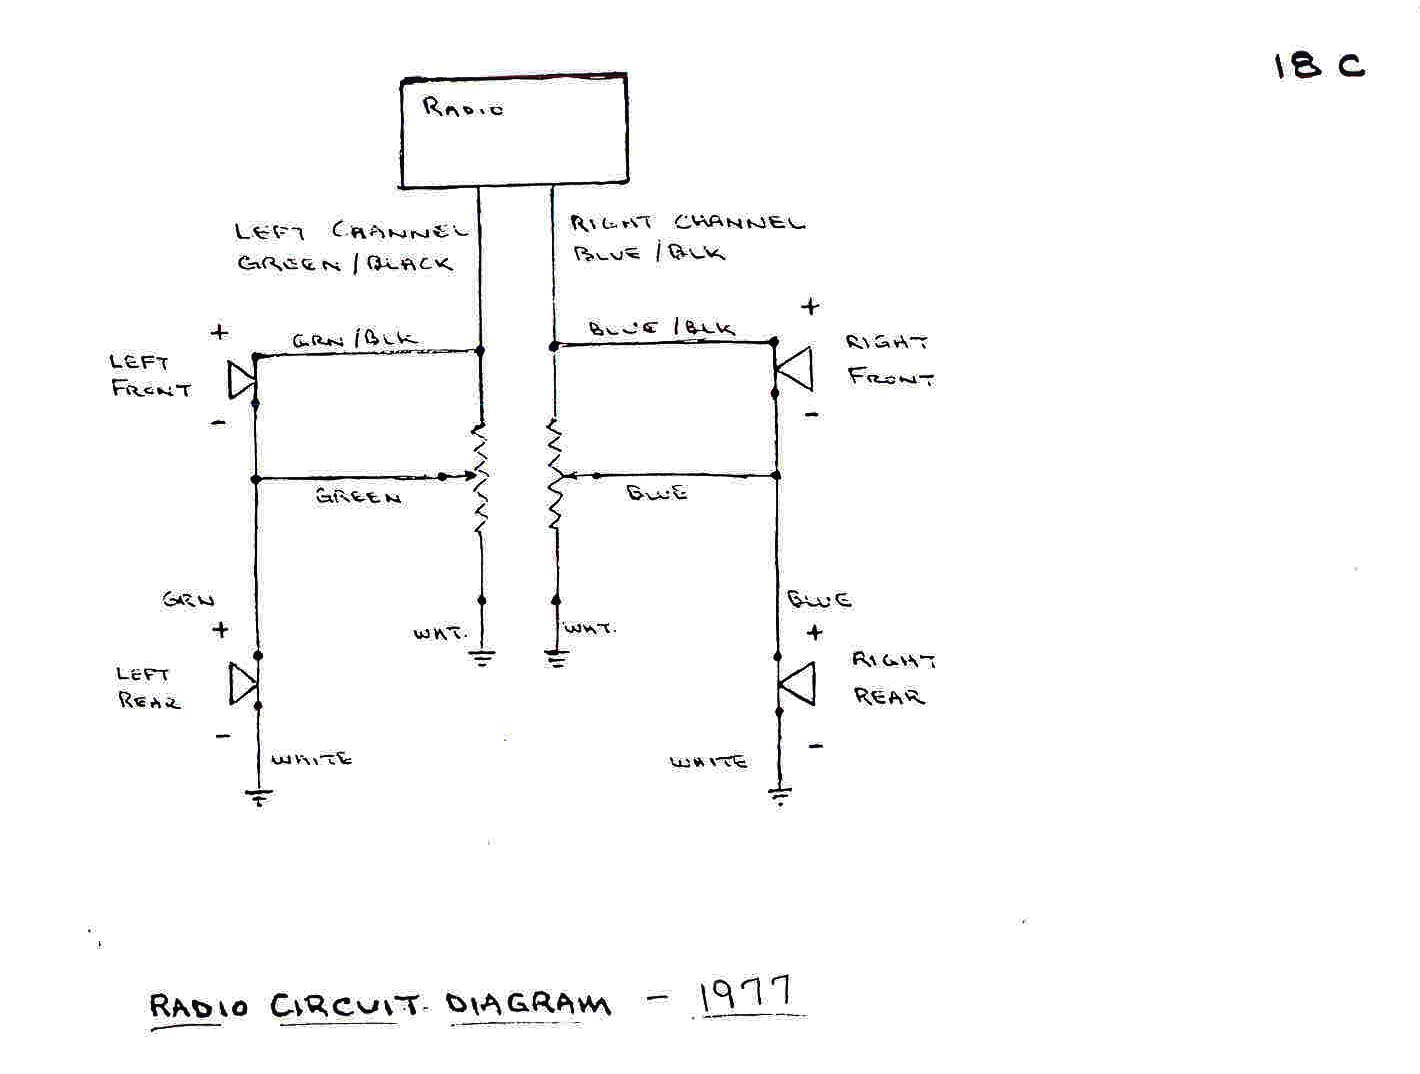 18 C
RADIO
LEFT CHANNEL
GREEN/BLACK
RIGHT CHANNEL
BLUE/BLK
+
GRN/BLK
LEFT
FRONT
-
BLUE/BLK
+
RIGHT
FRONT
-
GREEN
BLUE
GRN
+
LEFT
REAR
-
WHITE
WHT.
WHT.
BLUE
+
RIGHT
REAR
-
WHITE
RADIO CIRCUIT DIAGRAM - 1977